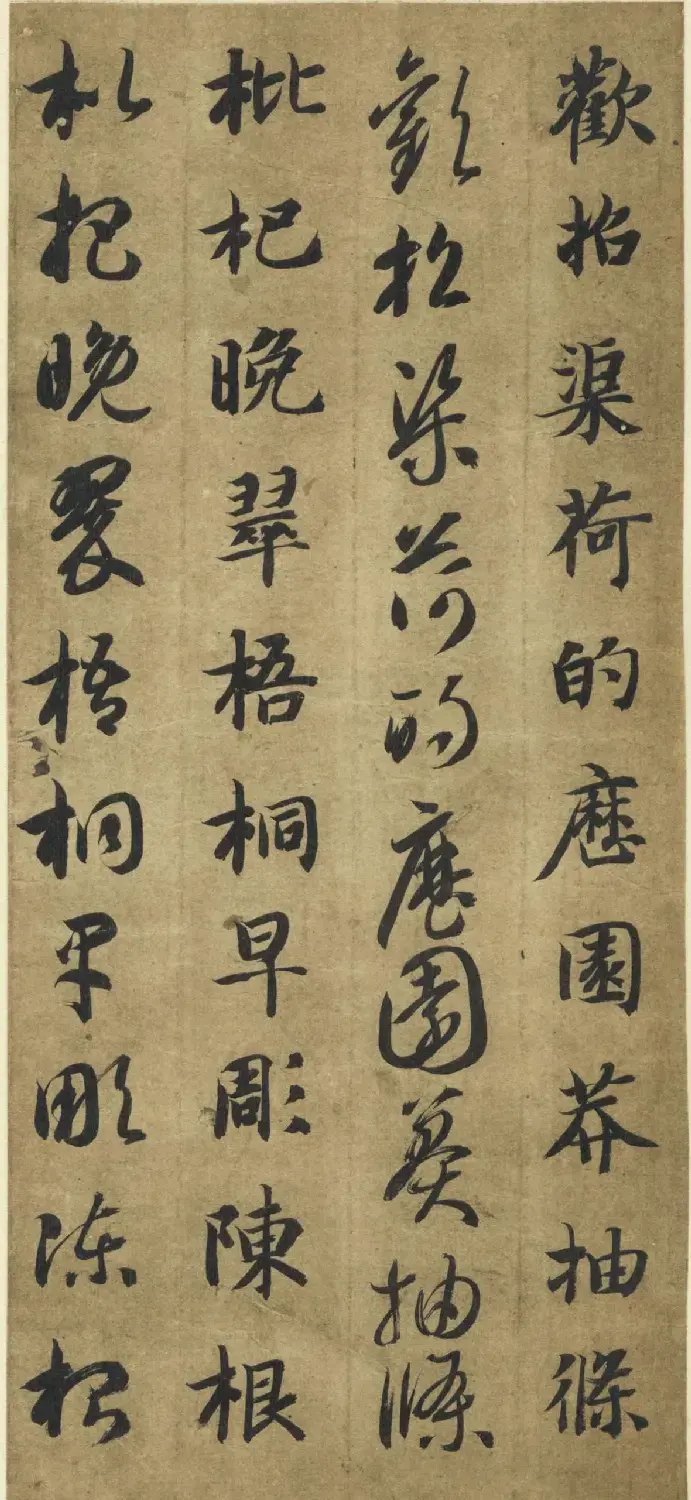 歡招渠荷的歷園莽抽條
歡招渠荷的歷園莽抽條
枇杷晚翠梧桐早彫陳根
枇杷晚翠梧桐早彫陳根